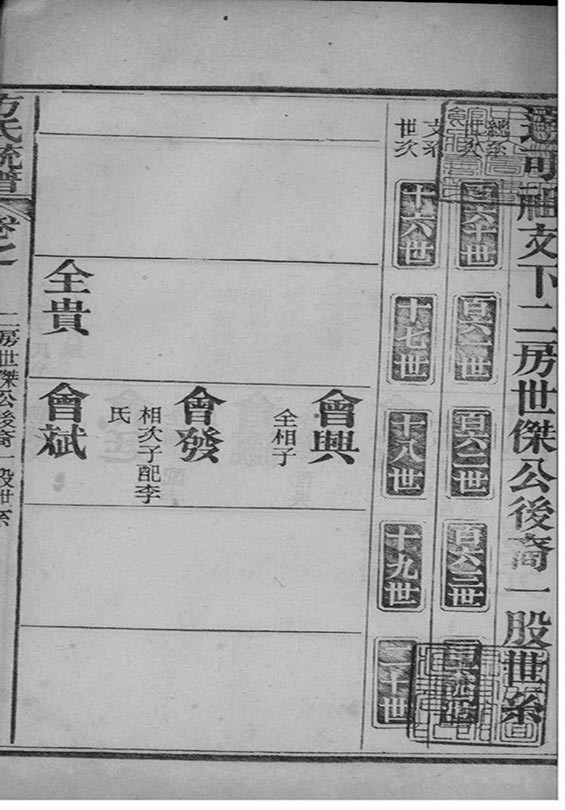 祖文下二房世傑公後裔一股世系
總系世次
文系世次
百六十世
百六一世
百六二世
百六三世
百六四世
十六世
十七世
十八世
十九世
二十世
會興
全相子
會發
相次子配李
氏
全貴
會斌
方氏統譜
卷之一
二房世傑公後裔一股世系